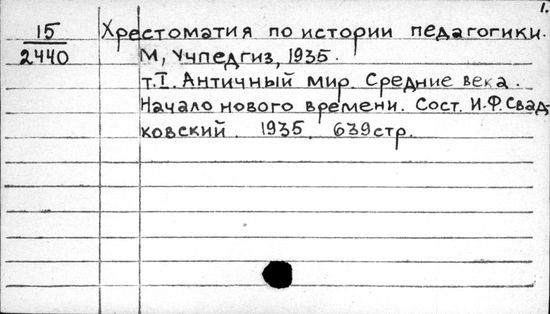 1.
15 Хрестоматия по истории педагогики.
2440 М, Учпедгиз, 1935.
т.I. Античный мир. Средние века.
Начало нового времени. Сост. И.Ф.Свад-
ковский. 1935. 639стр.